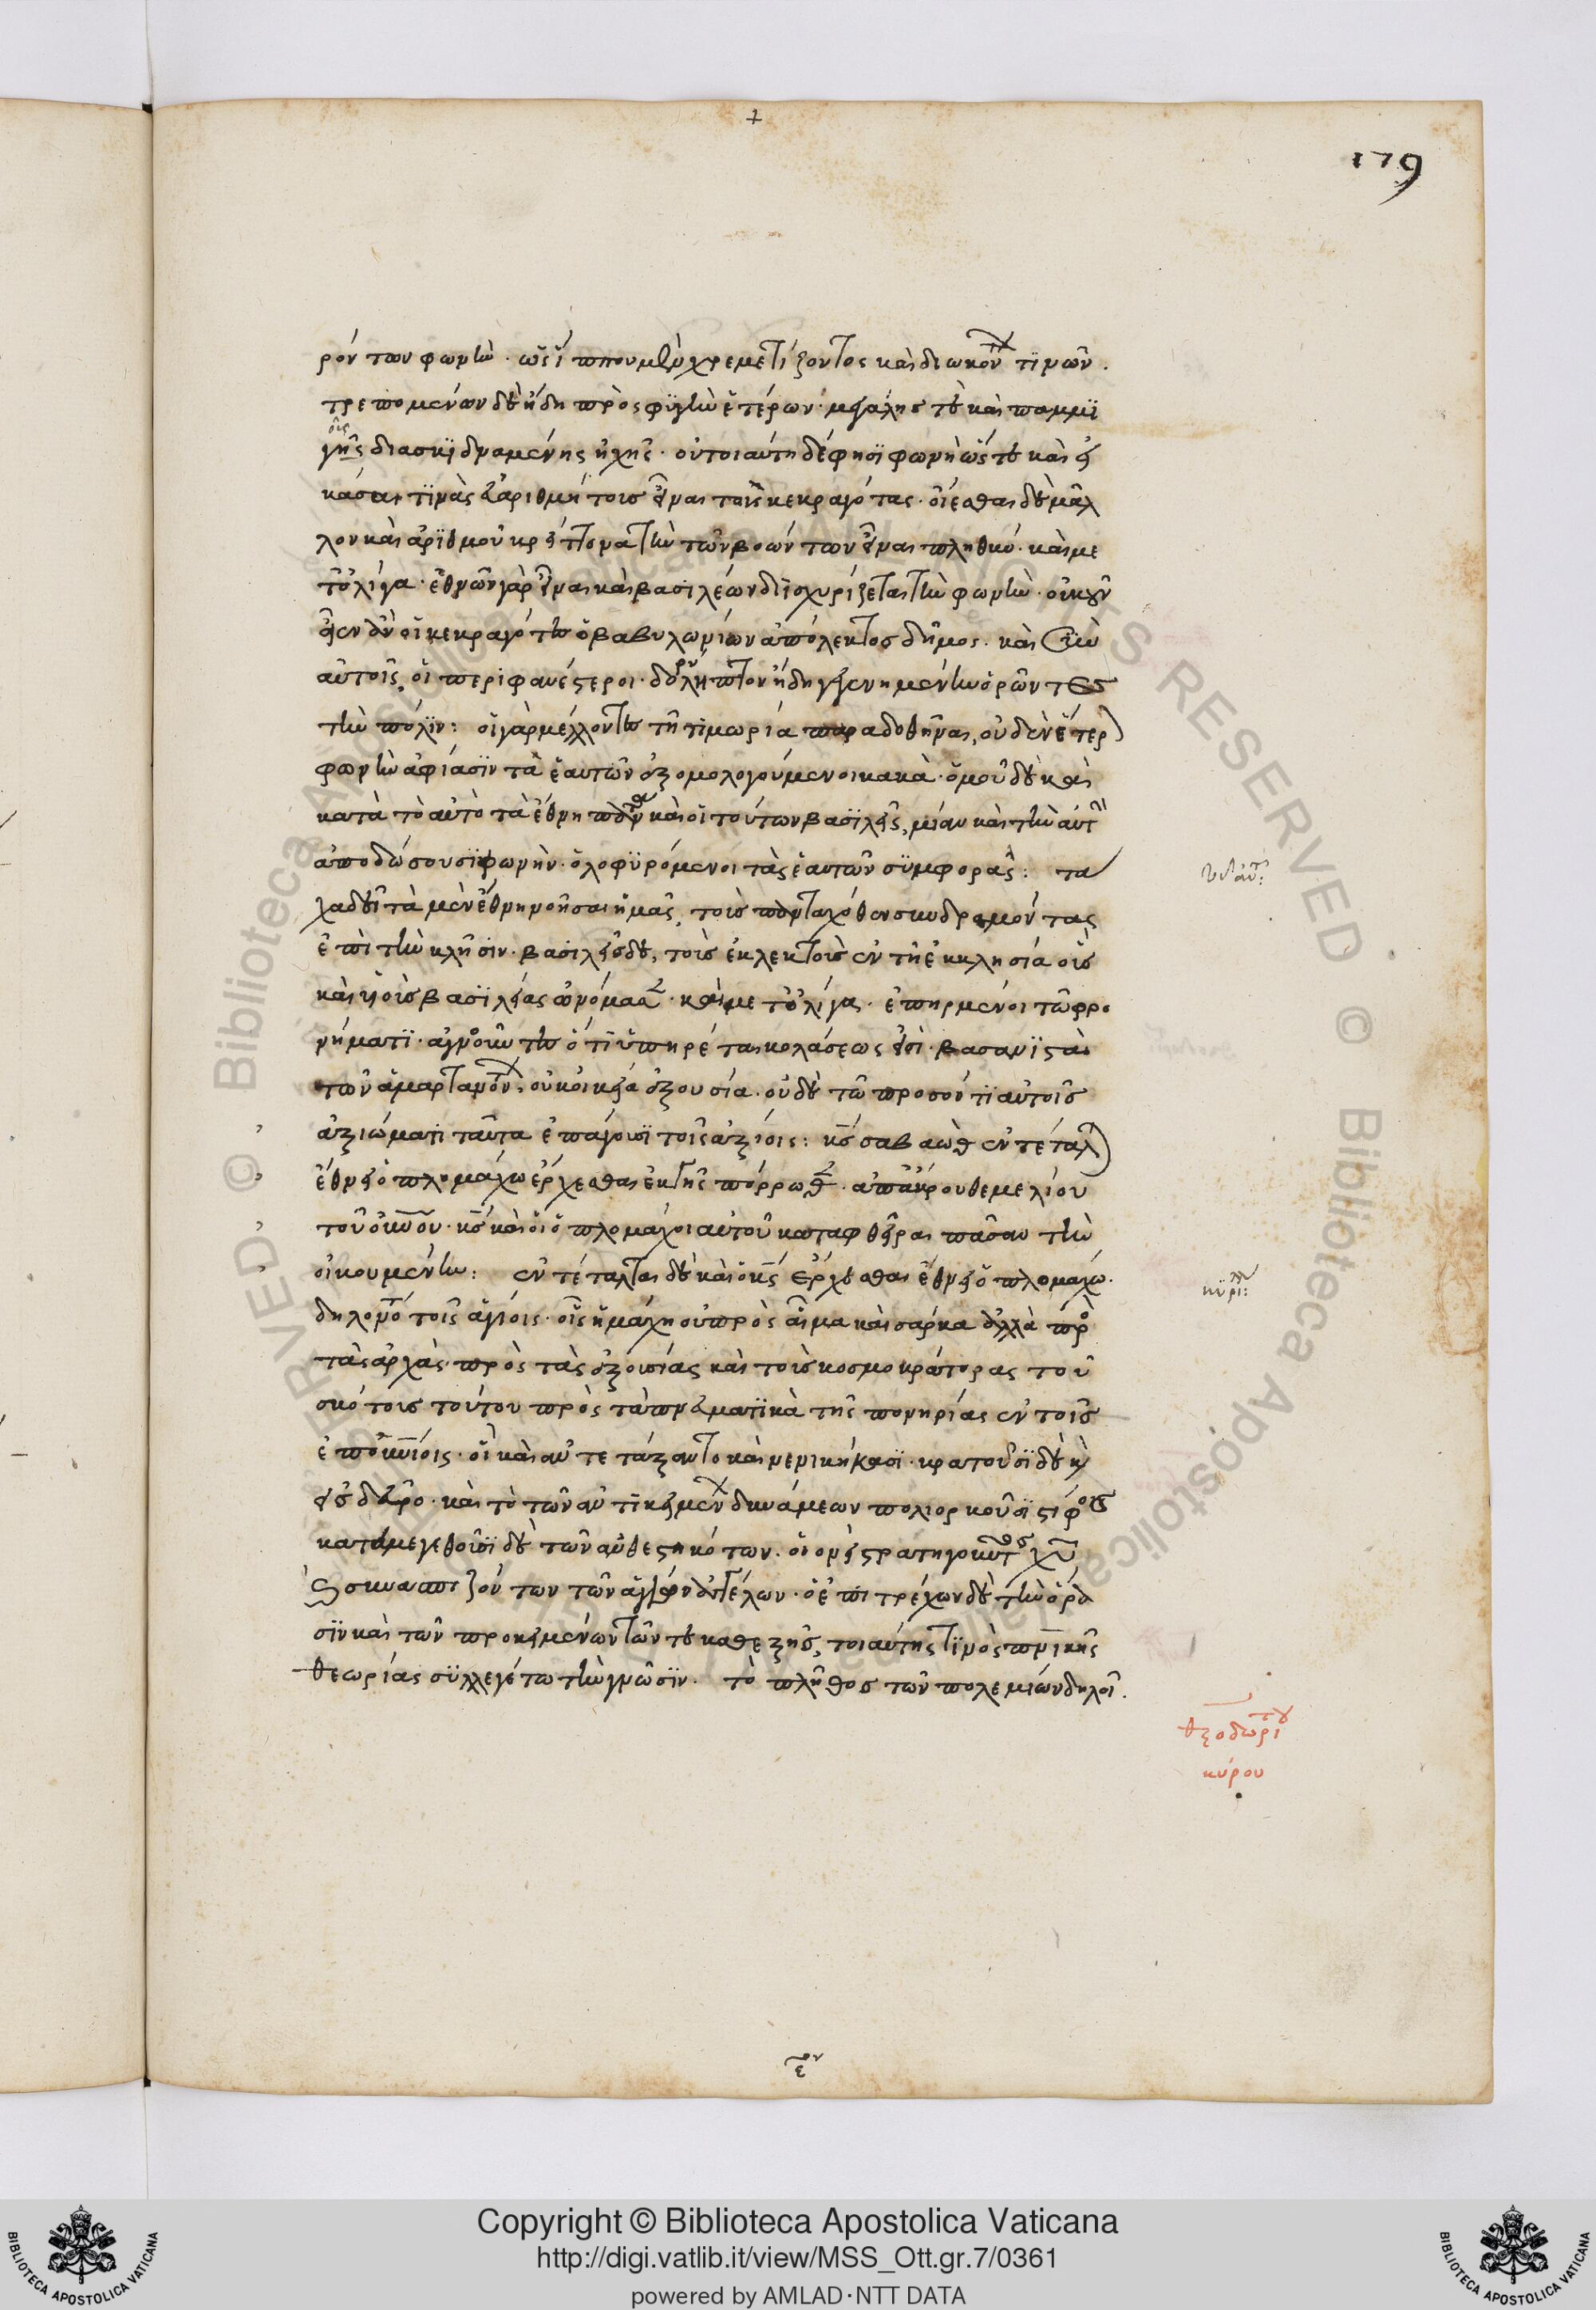 179
ρόν των φωνὴν · ὡς εἴ που μὲν χρεμετίζοντος καὶ διωκόντων τινῶν ·
τρεπομένων δὲ ἤδη πρὸς φυγὴν ἑτέρων · μεγάλης τε καὶ παμμι
γοῦς διασκιδναμένης ἠχῆς · τοιαύτη δέ φησι φωνὴ ὥστε καὶ εἰ
κάσαι τινὰς ἀναριθμήτους εἶναι τοὺς κεκραγότας · οἴεσθαι δὲ μᾶλ
λον καὶ ἀριθμοῦ κρείττονα τὴν τῶν βοώντων εἶναι πληθύν · καὶ με
τ᾽ ὀλίγα · ἐθνῶν γὰρ εἶναι καὶ βασιλέων διισχυρίζεται τὴν φωνήν · οὐκοῦν
εἶεν ἂν οἱ κεκραγότες ὁ βαβυλωνίων ἀπόλεκτος δῆμος · καὶ σὺν
αὐτοῖς, οἱ περιφανέστεροι · δορύληπτον ἤδη γεγενημένην ὁρῶντες
τὴν πόλιν : οἱ γὰρ μέλλοντες τῇ τιμωρίᾳ παραδοθῆναι, οὐδὲν ἕτερ
φωνὴν ἀφίασιν τὰ ἑαυτῶν ἐξομολογούμενοι κακὰ · ὁμοῦ δὲ καὶ
κατὰ τὸ αὐτὸ τὰ ἔθνη πάντα καὶ οἱ τούτων βασιλεῖς, μίαν καὶ τὴν αὐτὴν
ἀποδώσουσι φωνὴν · ὀλοφυρόμενοι τὰς ἑαυτῶν συμφορὰς : τα
χα δὲ τὰ μὲν ἔθνη νοῆσαι ἡμᾶς, τοὺς πανταχόθεν συνδραμόντας
ἐπὶ τὴν κλῆσιν · βασιλεῖς δὲ, τοὺς ἐκλεκτοὺς ἐν τῇ ἐκκλησίᾳ οὓς
καὶ βασιλέας ὠνόμασεν · καὶ μετ᾽ ὀλίγα · ἐπηρμένοι τῷ φρο
νήματι · ἀγνοοῦντες ὅτι ὑπηρέται κολάσεώς εἰσι · βασανισταὶ
τῶν ἁμαρτανόντων, οὐκ οἰκείᾳ ἐξουσίᾳ · οὐδὲ τῷ προσόντι αὐτοῖς
ἀξιώματι ταῦτα ἐπάγουσι τοῖς ἀξίοις : κς σαβαὼθ ἐντέταλ
ἔθνει ὁπλομάχῳ ἔρχεσθαι ἐκ γῆς πόρρωθεν · ἀπ᾽ ἄκρου θεμελίου
τοῦ οὐνοῦ · κς καὶ οἱ ὁπλομάχοι αὐτοῦ καταφθεῖραι πᾶσαν τὴν
οἰκουμένην : ἐντέταλται δὲ καὶ ὁ κς ἔρχεσθαι ἔθνει ὁπλομάχῳ ·
δηλονότι τοῖς ἁγίοις · οἷς ἡ μάχη οὐ πρὸς αἷμα καὶ σάρκα ἀλλὰ πρὸς
τὰς ἀρχὰς · πρὸς τὰς ἐξουσίας καὶ τοὺς κοσμοκράτορας τοῦ
σκότους τούτου πρὸς τὰ πνευματικὰ τῆς πονηρίας ἐν τοῖς
ἐπουνίοις · οἳ καὶ ἀντετάξαντο καὶ νενικήκασι · κρατοῦσι δὲ καὶ
εἰς δεῦρο · καὶ τὸ τῶν ἀντικειμένων δυνάμεων πολιορκοῦσι στίφος
κατ · τῶν ἀνθεστηκότων · στρατηγοῦντος χυ
συνασπιζόντων τῶν ἁγίων ἀγγέλων · ὁ ἐπιτρέχων δὲ τὴν ὅρα
σιν καὶ τῶν προκειμένων τῶν τε καθεξῆς, τοιαύτης τινὸς πνικῆς
θεωρίας συλλεγέτω τὴν γνῶσιν · τὸ πλῆθος τῶν πολεμίων δηλοῖ ·
τοῦ αὐτ :
κυρίλλ :
θεοδωρίτου
κύρου
Copyright © Biblioteca Apostolica Vaticana
http://digi.vatlib.it/view/MSS_Ott.gr.7/0361
powered by AMLAD·NTT DATA
BIBLIOTECA APOSTOLICA VATICANA
BIBLIOTECA APOSTOLICA VATICANA